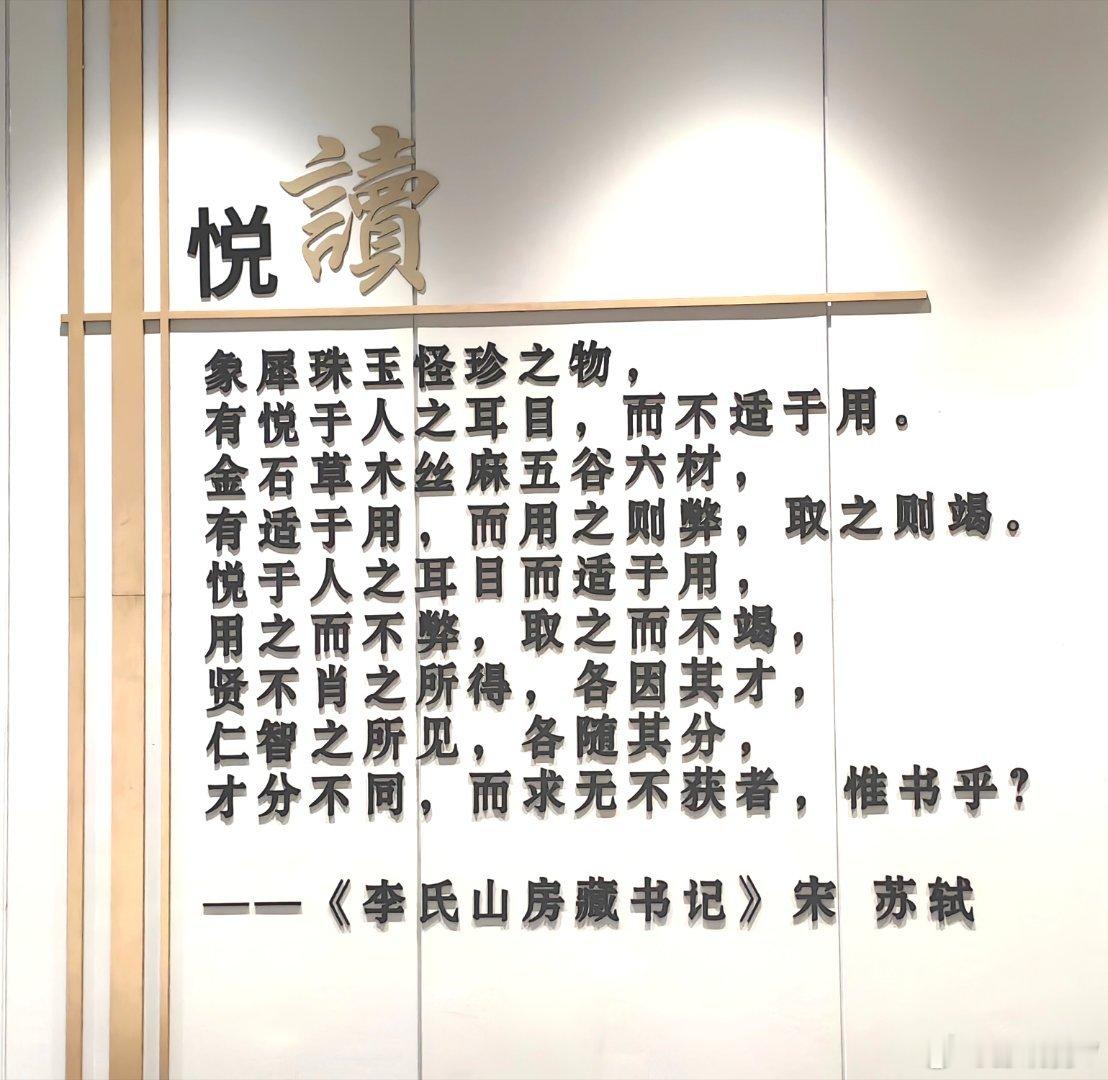 悦讀
象犀珠玉怪珍之物，
有悦于人之耳目，而不适于用。
金石草木丝麻五谷六材，
有适于用，而用之则弊，取之则竭。
悦于人之耳目而适于用，
用之而不弊，取之而不竭，
贤不肖之所得，各因其才，
仁智之所见，各随其分，
才分不同，而求无不获者，惟书乎？
——《李氏山房藏书记》宋 苏轼